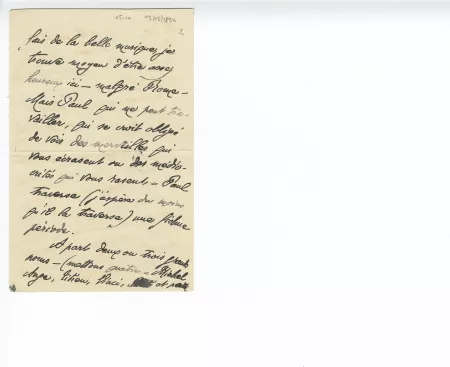 2
fais de la belle musique, je
trouve moyen d'être assez
heureux ici — malgré Rome —
Mais Paul qui ne peut tra-
vailler, qui se croit obligé
de voir des merveilles qui
vous écrasent ou des médio-
crités qui vous rasent — Paul
traverse (j'espère du moins
qu'il la traverse) une fichue
période.
A part deux ou trois grands
noms — (mettons quatre — Michel
Ange, Titien, Vinci, et